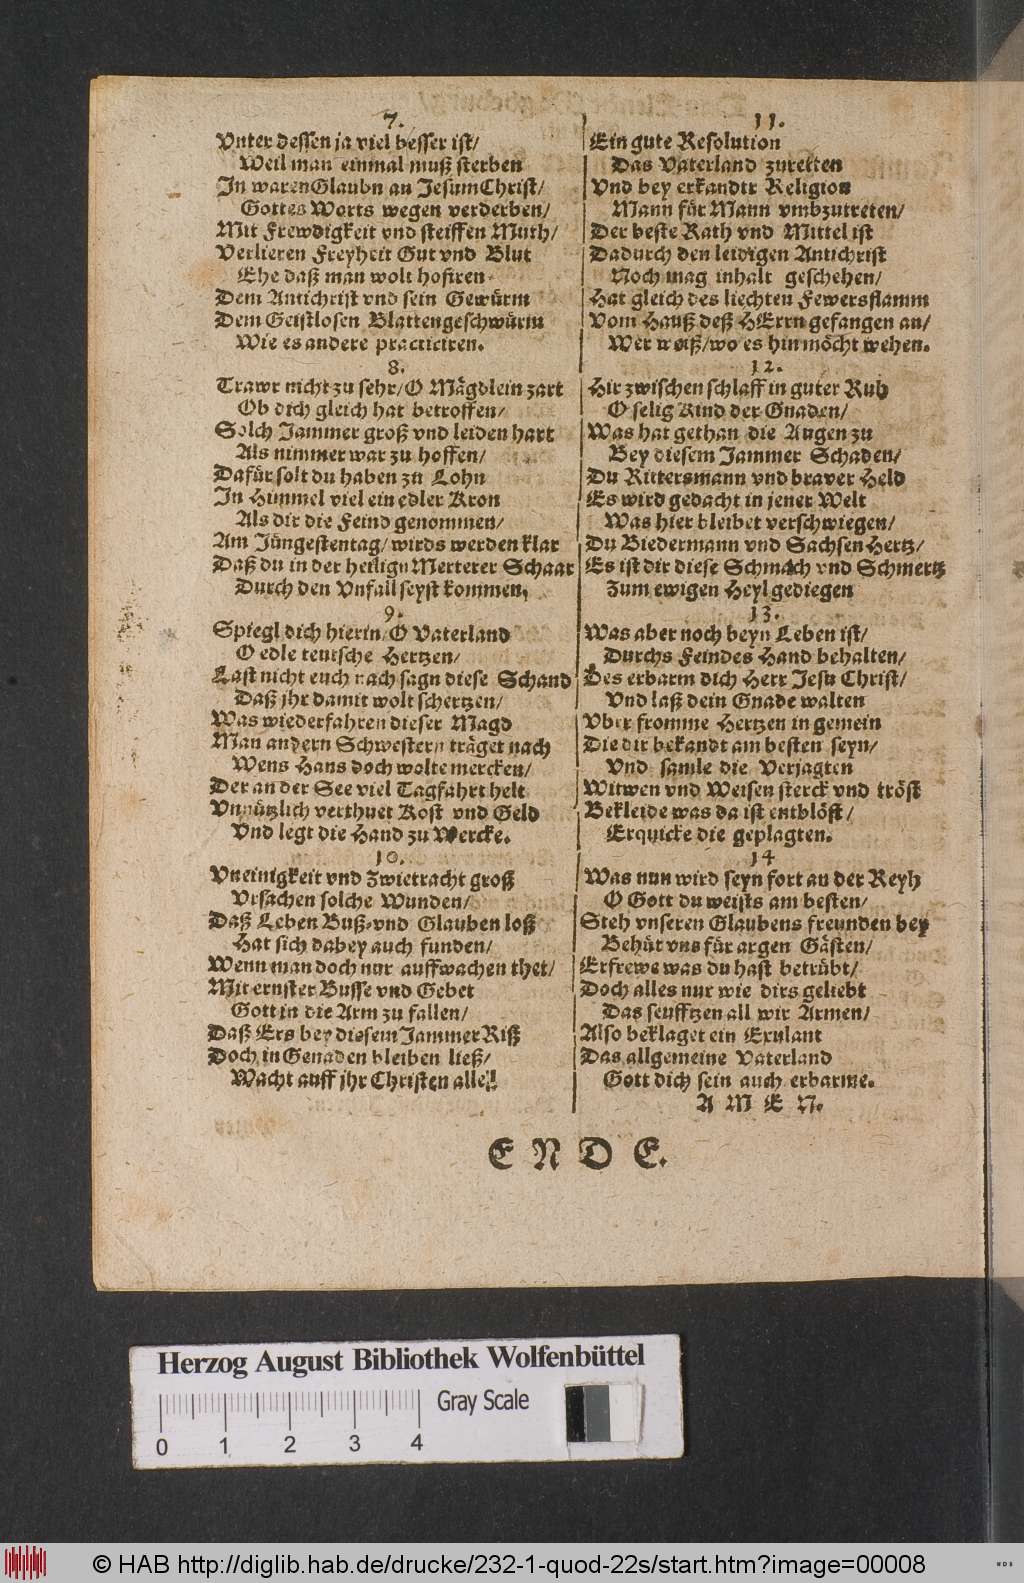 7.
Vnter dessen ja viel besser ist/
Weil man einmal muß sterben
In waren Glaubn an Jesum Christ/
Gottes Worts wegen verderben/
Mit Frewdigkeit vnd steiffen Muth/
Verlieren Freyheit Gut vnd Blut
Ehe daß man wolt hofiren
Dem Antichrist vnd sein Gewürm
Dem Geistlosen Blattengeschwürm
Wie es andere practiciren.
8.
Trawr nicht zu sehr/ O Mägdlein zart
Ob dich gleich hat betroffen/
Solch Jammer groß vnd leiden hart
Als nimmer war zu hoffen/
Dafür solt du haben zu Lohn
In Himmel viel ein edler Kron
Als dir die Feind genommen/
Am Jüngestentag/ wirds werden klar
Daß du in der heilign Merterer Schaar
Durch den Vnfall seyst kommen.
9.
Spiegl dich hierin/ O Vaterland
O edle teutsche Hertzen/
Last nicht euch nach sagn diese Schand
Daß jhr damit wolt schertzen/
Was wiederfahren dieser Magd
Man andern Schwestern träget nach
Wens Hans doch wolte mercken/
Der an der See viel Tagfahrt helt
Vnnützlich verthuet Kost vnd Geld
Vnd legt die Hand zu Wercke.
10.
Vneinigkeit vnd Zwietracht groß
Vrsachen solche Wunden/
Daß Leben Buß vnd Glauben loß
Hat sich dabey auch funden/
Wenn man doch nur auffwachen thet/
Mit ernster Busse vnd Gebet
Gott in die Arm zu fallen/
Daß Ers bey diesem Jammer Riß
Doch in Genaden bleiben ließ/
Wacht auff jhr Christen alle!
11.
Ein gute Resolution
Das Vaterland zuretten
Vnd bey erkandtr Religion
Mann für Mann vmbzutreten/
Der beste Rath vnd Mittel ist
Dadurch den leidigen Antichrist
Noch mag inhalt geschehen/
Hat gleich des liechten Fewersflamm
Vom Hauß deß HErrn gefangen an/
Wer weiß/ wo es hin möcht wehen.
12.
Hir zwischen schlaff in guter Ruh
O selig Kind der Gnaden/
Was hat gethan die Augen zu
Bey diesem Jammer Schaden/
Du Rittersmann vnd braver Held
Es wird gedacht in jener Welt
Was hier bleibet verschwiegen/
Du Biedermann vnd Sachsen Hertz/
Es ist dir diese Schmach vnd Schmertz
Zum ewigen Heyl gediegen
13.
Was aber noch beyn Leben ist/
Durchs Feindes Hand behalten/
Des erbarm dich Herr Jesu Christ/
Vnd laß dein Gnade walten
Vber fromme Hertzen in gemein
Die dir bekandt am besten seyn/
Vnd samle die Verjagten
Witwen vnd Weisen sterck vnd tröst
Bekleide was da ist entblöst/
Erquicke die geplagten.
14
Was nun wird seyn fort an der Reyh
O Gott du weists am besten/
Steh vnseren Glaubens freunden bey
Behüt vns für argen Gästen/
Erfrewe was du hast betrübt/
Doch alles nur wie dirs geliebt
Das seufftzen all wir Armen/
Also beklaget ein Exulant
Das allgemeine Vaterland
Gott dich sein auch erbarme.
A M E N.
E N D E.
Herzog August Bibliothek Wolfenbüttel
Gray Scale
0 1 2 3 4
© HAB http://diglib.hab.de/drucke/232-1-quod-22s/start.htm?image=00008
WDB